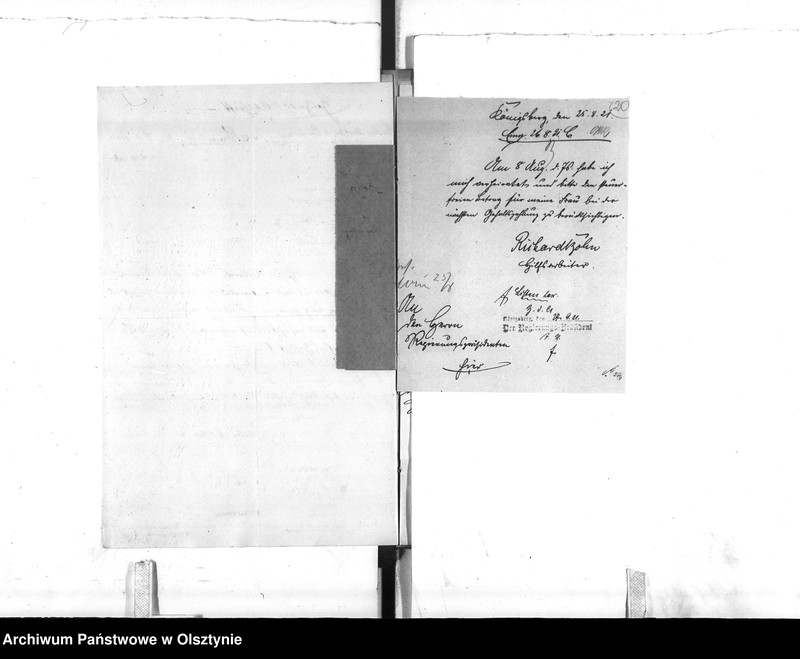 20
Königsberg, den 25.8.21.
Eing. 26.8.21. C
Am 8 Aug. d. Js. habe ich
mich verheiratet und bitte den steuer-
freien Betrag für meine Frau bei der
nächsten Gehaltszahlung zu berücksichtigen.
Richard Köhn
Hilfsarbeiter.
An
den Herrn
Regierungspräsidenten
hier
z. d. A.
Königsberg, den
Der Regierungs-Präsident
Archiwum Państwowe w Olsztynie